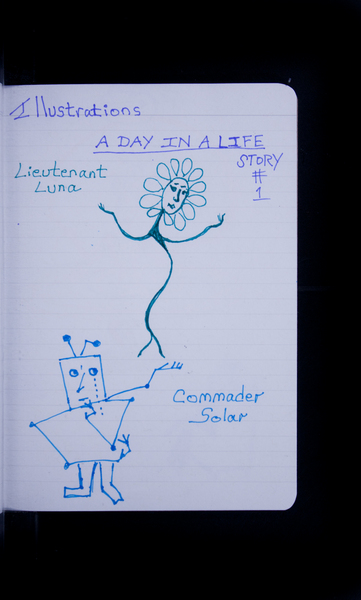 Illustrations
A DAY IN A LIFE
STORY
#
1
Lieutenant
Luna
Commader
Solar